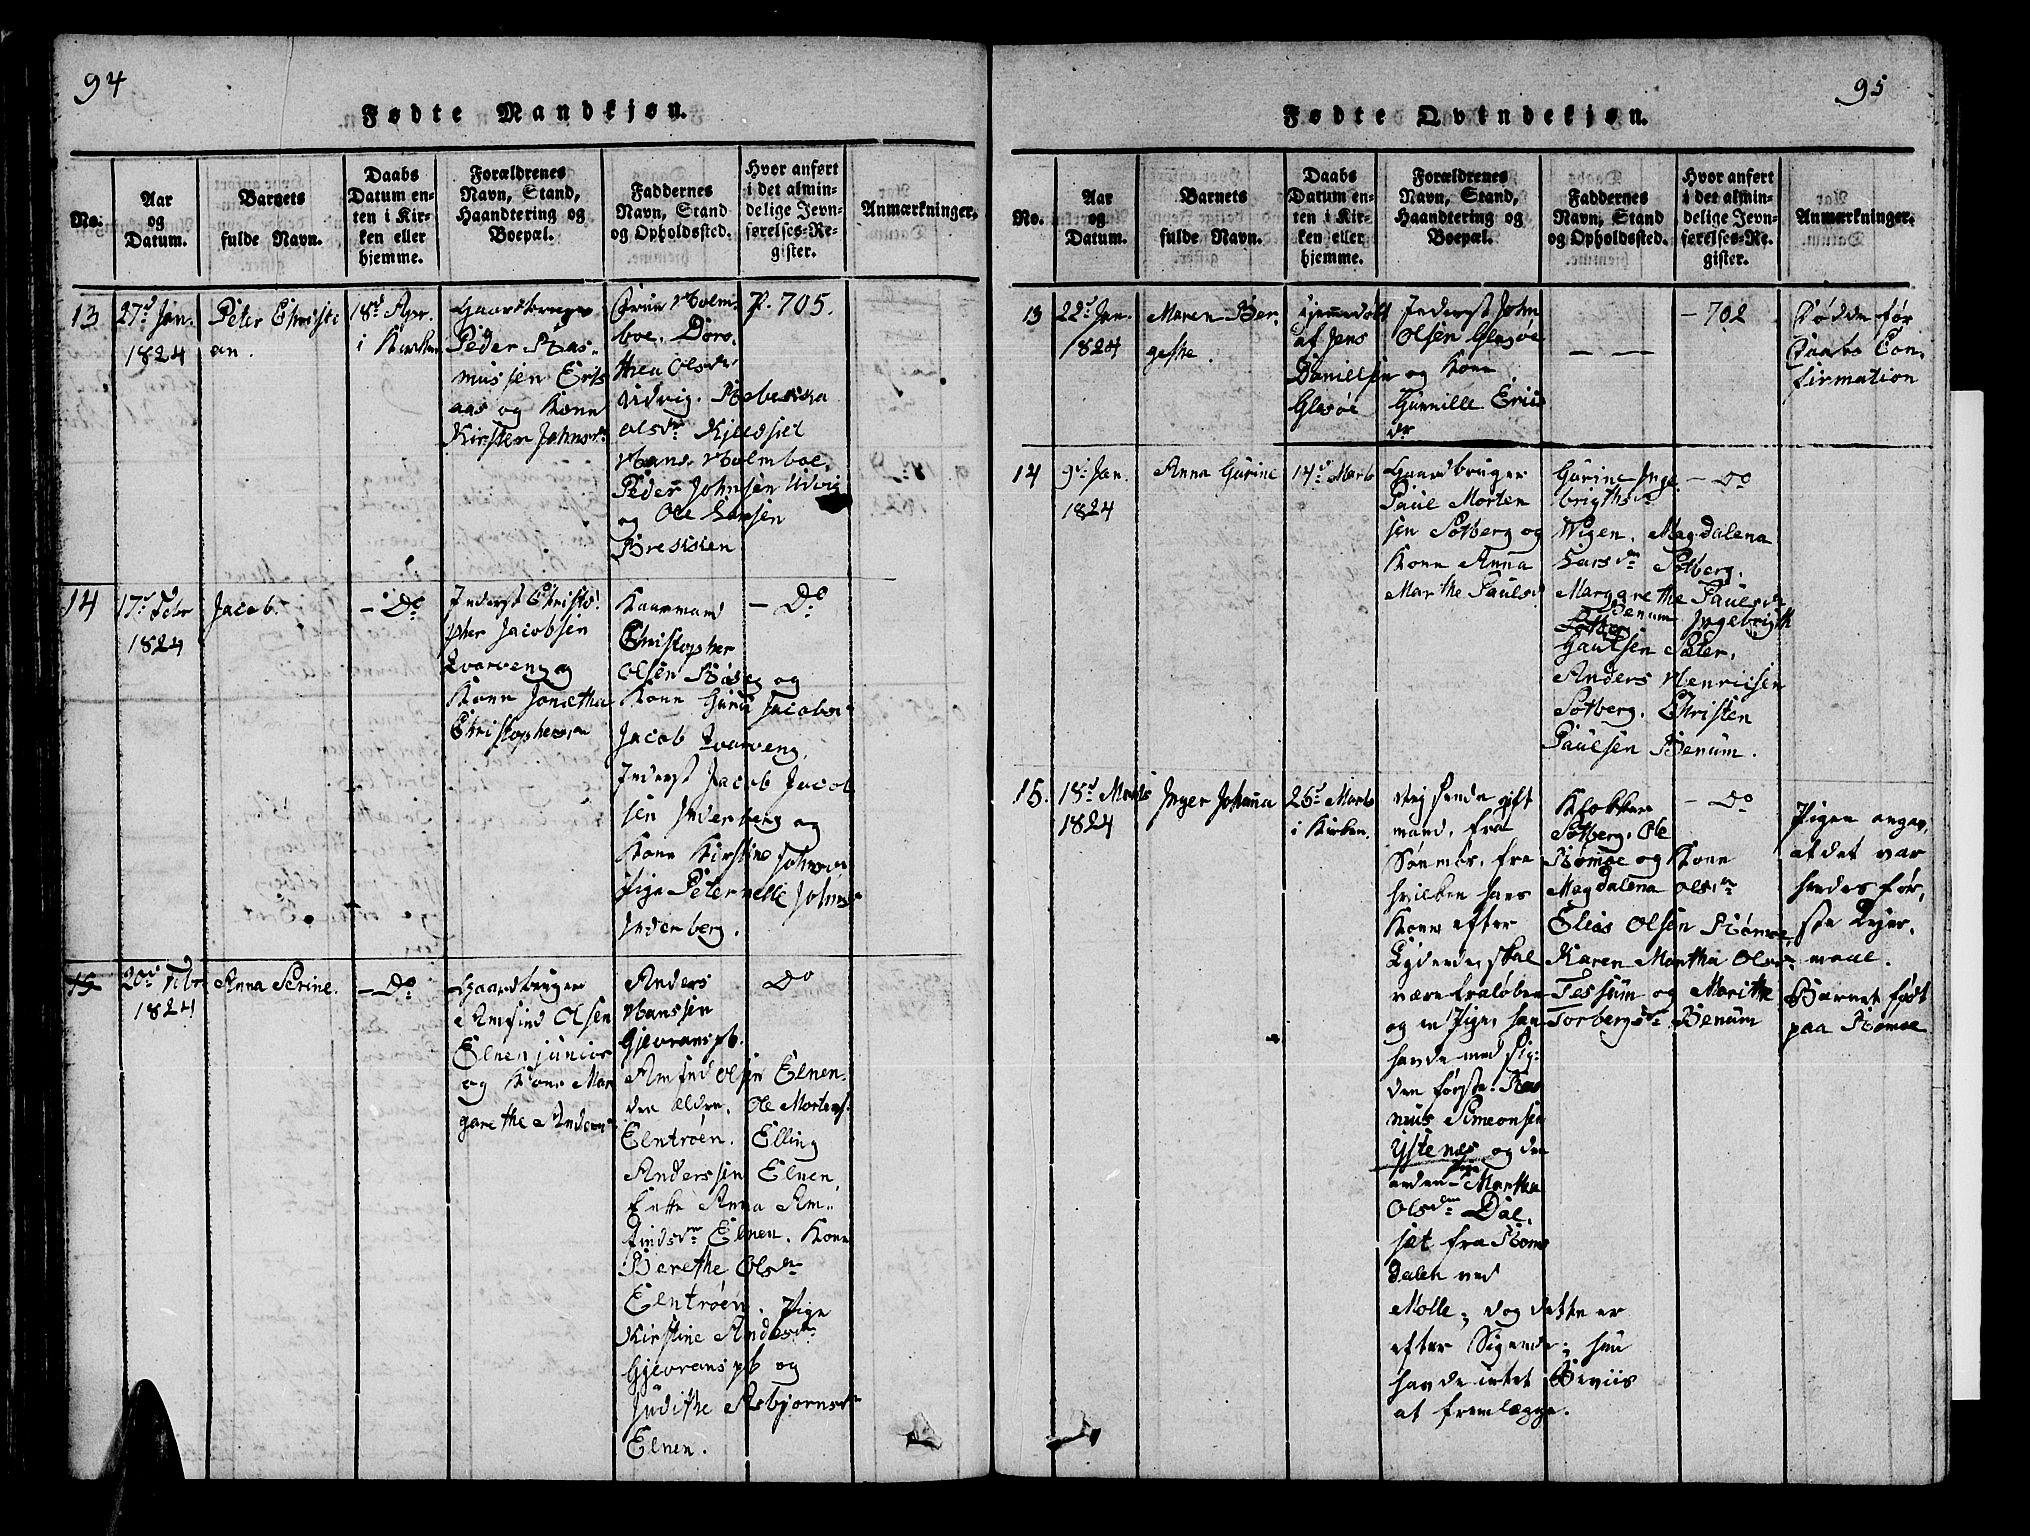 94
Fødte Mandkjøn.
No.
Aar
og
Datum.
Barnets
fulde Navn.
Daabs
Datum en-
ten i Kir-
ken eller
hjemme.
Forældrenes
Navn, Stand,
Haandtering og
Boepæl.
Faddernes
Navn, Stand
og Opholdssted.
Hvor anført
i det almin-
delige Jevn-
førelses-Re-
gister.
Anmærkninger.
13
27d Jan.
1824
Peter Christi
an.
18d Apr.
i Kirken
Gaardbruger
Peder Ras-
mussen Erts
aas og Kone
Kirsten Johnsdr
Holm-
boe. Doro-
thea Olsdr
Udvig. Rebecka
Olsdr Kjeldsæt
Hans Holmboe.
Peder Johnsen Udvig
og Ole Larsen
P. 705.
14
17d Febr
1824
Jacob.
- Do
Inderst Christo-
pher Jacobsen
Qvarveng og
Kone Jonetha
Christophersdr
Kaarmand
Christopher
Olsen Røseg og
Kone Guru Jacobsdr
Jacob Qvarveng
Inderst Jacob Jacob
sen Inderberg og
Kone Kirstine Johnsdr
Pige Peternelle Johnsdr
Inderberg.
- Do
15
20d Febr
1824
Anna Serine.
- Do
Gaardbruger
Arnfind Olsen
Elnen junior
og Kone Mar
garethe Andersdr
Anders
Hanssen
Gjevranspb.
Arnfind Olsen Elnen
den ældre. Ole Mortens.
Elntrøen. Elling
Anderssen Elnen
Enke Anna Arn-
findsdr Elnen. Kone
Berethe Olsdr
Elntrøen. Pige
Kirstine Andersdr
Gjevranspb og
Judithe Asbjørnsdr
Elnen.
Do
95
Fødte Qvindekjøn.
No.
Aar
og
Datum.
Barnets
fulde Navn.
Daabs
Datum en-
ten i Kir-
ken eller
hjemme.
Forældrenes
Navn, Stand,
Haandtering og
Boepæl.
Faddernes
Navn, Stand
og Opholdssted.
Hvor anført
i det almin-
delige Jevn-
førelses-Re-
gister.
Anmærkninger.
13
22d Jan.
1824
Maren Ber-
gethe.
Hjemmedøbt
af Jens
Danielsen
Glesøe
Inderst John
Olsen Glesøe
og Kone
Gunnille Erics
dr
— —
- 702
Dødde før
Daabs Con-
firmation
14
9d Jan.
1824
Anna Gurine
14d Marts
Gaardbruger
Paul Morten
sen Sotberg og
Kone Anna
Marthe Paulsdr
Gurine Inge
brigthsdr
Wigen. Magdalena
Larsdr Sotberg.
Margarethe Paulsdr
Benum Ingebrigth
Gaulsen Sæter.
Anders Henricsen
Sotberg. Christen
Paulsen Benum.
- Do
15.
18d Marts
1824
Inger Johanna
25d Marts
i Kirken.
Veisende gift
mand, fra
Søndmør, fra
hvilken hans
Kone efter
Lydende skal
være fraløben
og en Pige, han
havde med sig:
den første. Ras
mus Simeonsen
Ystenæs og den
anden Pige Martha
Olsdr Dal.
sæt fra Roms
dalen ved
Molde; dog dette er
efter Sigende; hun
havde intet Beviis
at fremlægge.
Klokker
Sotberg. Ole
Rømoe og Kone
Magdalena Olsdr
Elias Olsen Rømoe
Karen Martha Olsdr
Tessum og Marithe
Torbergsdr Benum
- Do
Pigen angav,
at det var
hendes før-
ste Leier-
maal.
Barnet født
paa Rømoe